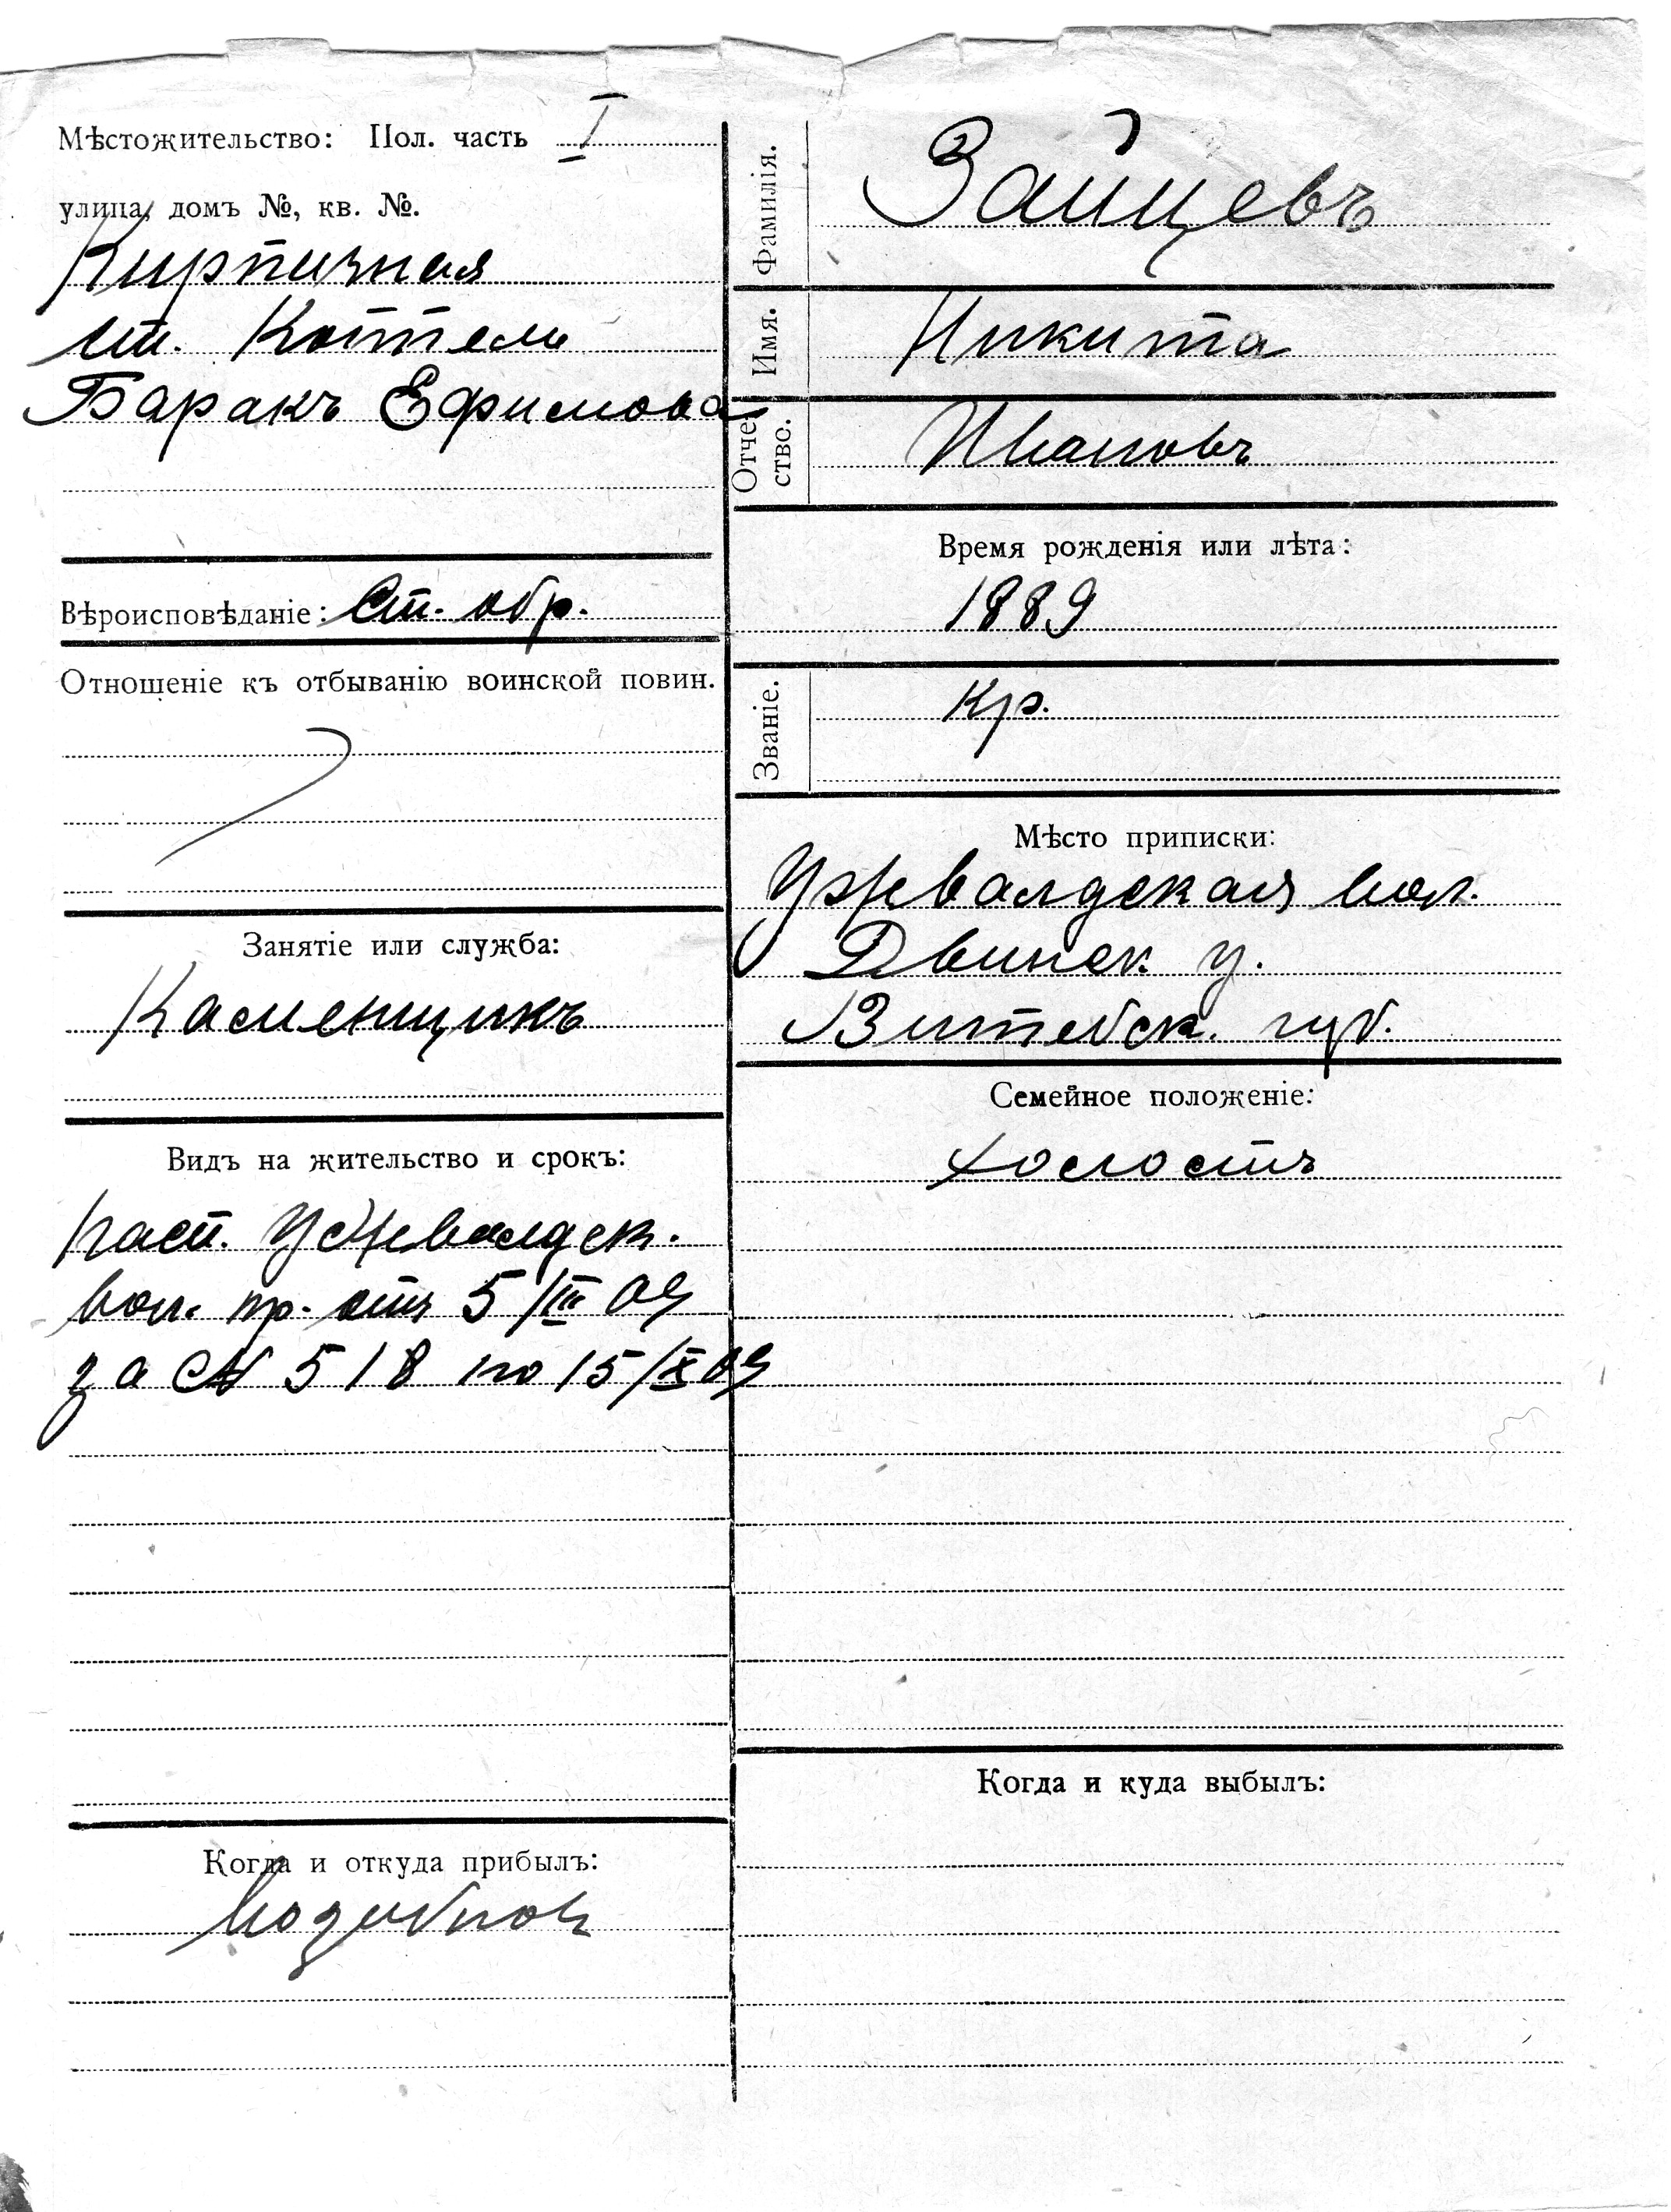 Мѣстожительство: Пол. часть I
улица, домъ №, кв. №.
Кирпичная
ст. Коттели
Баракъ Ефимова
Вѣроисповѣданіе: Ст. обр.
Отношеніе къ отбыванію воинской повин.
Занятіе или служба:
Каменщикъ
Видъ на жительство и срокъ:
пасп. Ужвалдск.
вол. пр. отъ 5/III 09
за № 518 по 15/X 09
Когда и откуда прибылъ:
Фамилія. Зайцевъ
Имя. Никита
Отчество. Ивановъ
Время рожденія или лѣта:
1889
Званіе. Кр.
Мѣсто приписки:
Ужвалдская вол.
Двинск у.
Витебск. губ.
Семейное положеніе:
холостъ
Когда и куда выбылъ: